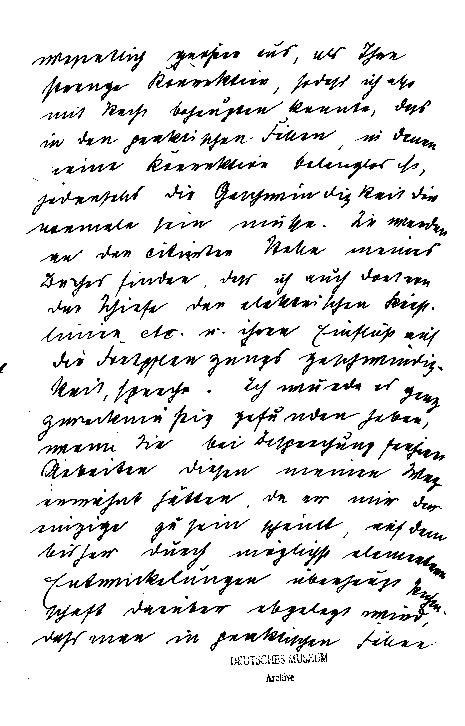 wesentlich größer aus, als Ihre
strenge Korrektion, sodaß ich also
mit Recht behaupten konnte, daß
in den praktischen Fällen, in denen
seine Korrektion belanglos ist,
jedenfalls die Geschwindigkeit die
normale sein müsse. Sie werden
an der citierten Stelle meines
Buches finden, daß ich auch dort von
der Schiefe der elektrischen Kraft-
linien etc. u. ihrem Einfluß auf
die Fortpflanzungsgeschwindig-
keit, spreche. Ich würde es ganz
zweckmäßig gefunden haben,
wenn Sie bei Besprechung
Arbeiten diesen meinen Weg
erwähnt hätten, da er mir der
einzige zu sein scheint, auf dem
bisher durch möglichst elementare
Entwickelungen überhaupt Rechen-
schaft darüber abgelegt wird,
daß man in praktischen Fällen
DEUTSCHES MUSEUM
Archive